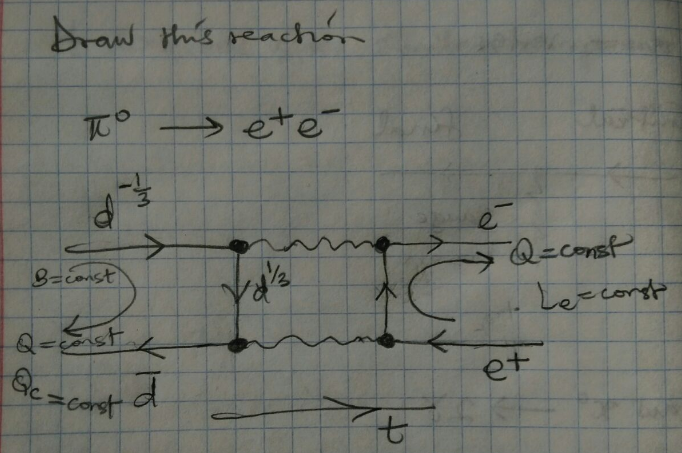 Draw this reaction
π⁰ → e⁺ e⁻
d^-1/3
e⁻
B=const
d^1/3
Q=const
Le=const
Q=const
Qc=const d̄
e⁺
t